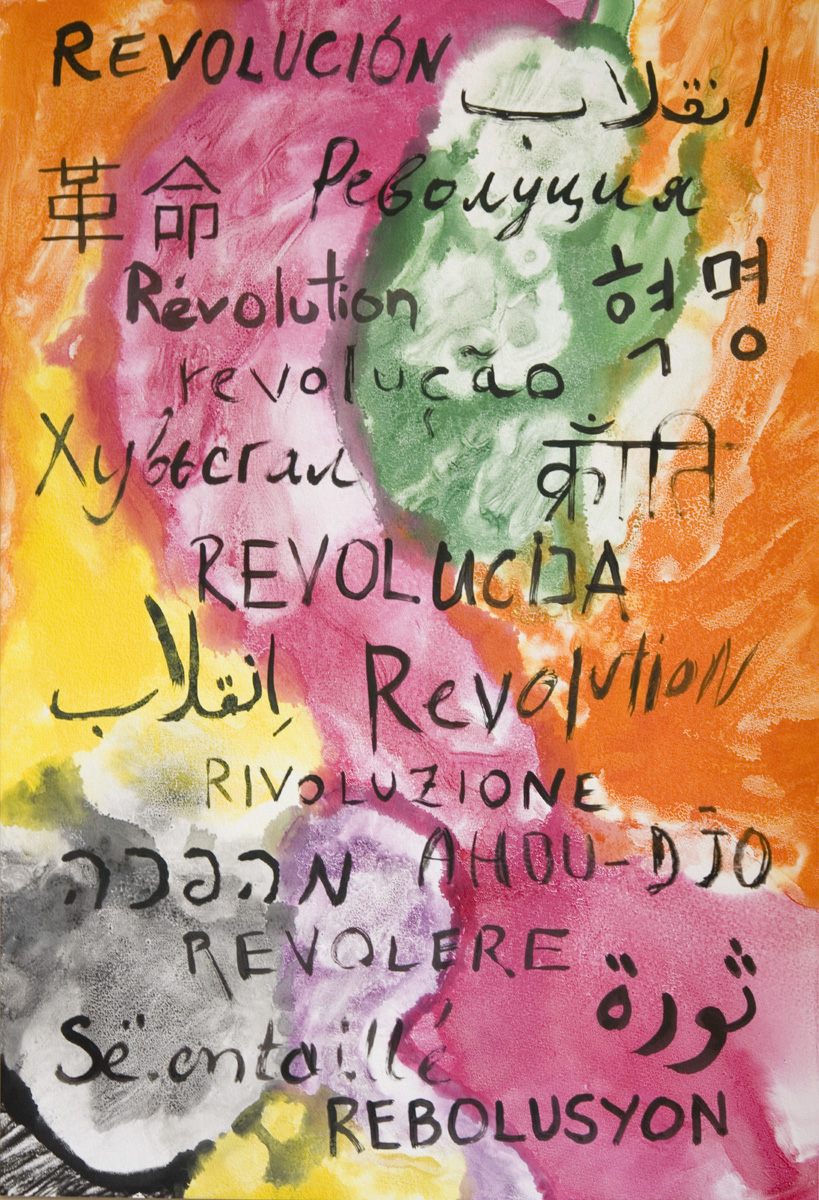 REVOLUCIÓN
انقلاب
革命
Революция
Révolution
혁명
revolução
Хувьсгал
क्राँति
REVOLUCIJA
اِنقلاب
Revolution
RIVOLUZIONE
מהפכה
AHOU-DJO
REVOLERE
ثورة
Së.entaillé
REBOLUSYON